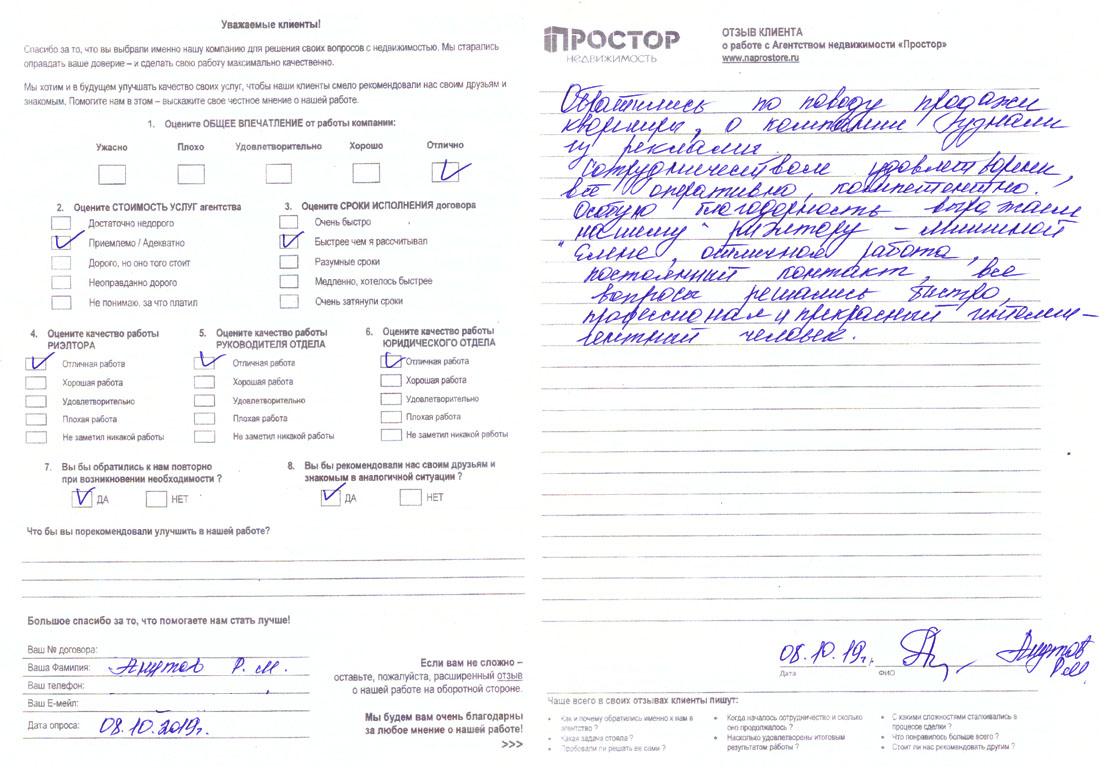 Уважаемые клиенты!
Спасибо за то, что вы выбрали именно нашу компанию для решения своих вопросов с недвижимостью. Мы старались
оправдать ваше доверие – и сделать свою работу максимально качественно.
Мы хотим и в будущем улучшать качество своих услуг, чтобы наши клиенты смело рекомендовали нас своим друзьям и
знакомым. Помогите нам в этом – выскажите свое честное мнение о нашей работе.
1. Оцените ОБЩЕЕ ВПЕЧАТЛЕНИЕ от работы компании:
Ужасно Плохо Удовлетворительно Хорошо Отлично
2. Оцените СТОИМОСТЬ УСЛУГ агентства
Достаточно недорого
Приемлемо / Адекватно
Дорого, но оно того стоит
Неоправданно дорого
Не понимаю, за что платил
3. Оцените СРОКИ ИСПОЛНЕНИЯ договора
Очень быстро
Быстрее чем я рассчитывал
Разумные сроки
Медленно, хотелось быстрее
Очень затянули сроки
4. Оцените качество работы
РИЭЛТОРА
Отличная работа
Хорошая работа
Удовлетворительно
Плохая работа
Не заметил никакой работы
5. Оцените качество работы
РУКОВОДИТЕЛЯ ОТДЕЛА
Отличная работа
Хорошая работа
Удовлетворительно
Плохая работа
Не заметил никакой работы
6. Оцените качество работы
ЮРИДИЧЕСКОГО ОТДЕЛА
Отличная работа
Хорошая работа
Удовлетворительно
Плохая работа
Не заметил никакой работы
7. Вы бы обратились к нам повторно
при возникновении необходимости ?
ДА НЕТ
8. Вы бы рекомендовали нас своим друзьям и
знакомым в аналогичной ситуации ?
ДА НЕТ
Что бы вы порекомендовали улучшить в нашей работе?
Большое спасибо за то, что помогаете нам стать лучше!
Ваш № договора:
Ваша Фамилия: Р. М.
Ваш телефон:
Ваш Е-мейл:
Дата опроса: 08.10.2019г.
Если вам не сложно –
оставьте, пожалуйста, расширенный отзыв
о нашей работе на оборотной стороне.
Мы будем вам очень благодарны
за любое мнение о нашей работе!
>>>
ПРОСТОР
НЕДВИЖИМОСТЬ
ОТЗЫВ КЛИЕНТА
о работе с Агентством недвижимости «Простор»
www.naprostore.ru
Обратились по поводу продажи
квартиры, о компании узнали
из рекламы.
Сотрудничеством удовлетворены,
всё оперативно, компетентно.
Особую благодарность выражаем
нашему риэлтору – Мишиной
Елене, отличной работа,
постоянный контакт, все
вопросы решались быстро,
профессионал и прекрасный интелли-
гентный человек.
08.10.19г.
Р.М.
Дата ФИО
Чаще всего в своих отзывах клиенты пишут:
• Как и почему обратились именно к нам в
агентство ?
• Какая задача стояла ?
• Пробовали ли решать ее сами ?
• Когда началось сотрудничество и сколько
оно продолжалось ?
• Насколько удовлетворены итоговым
результатом работы ?
• С какими сложностями сталкивались в
процессе сделки ?
• Что понравилось больше всего ?
• Стоит ли нас рекомендовать другим ?